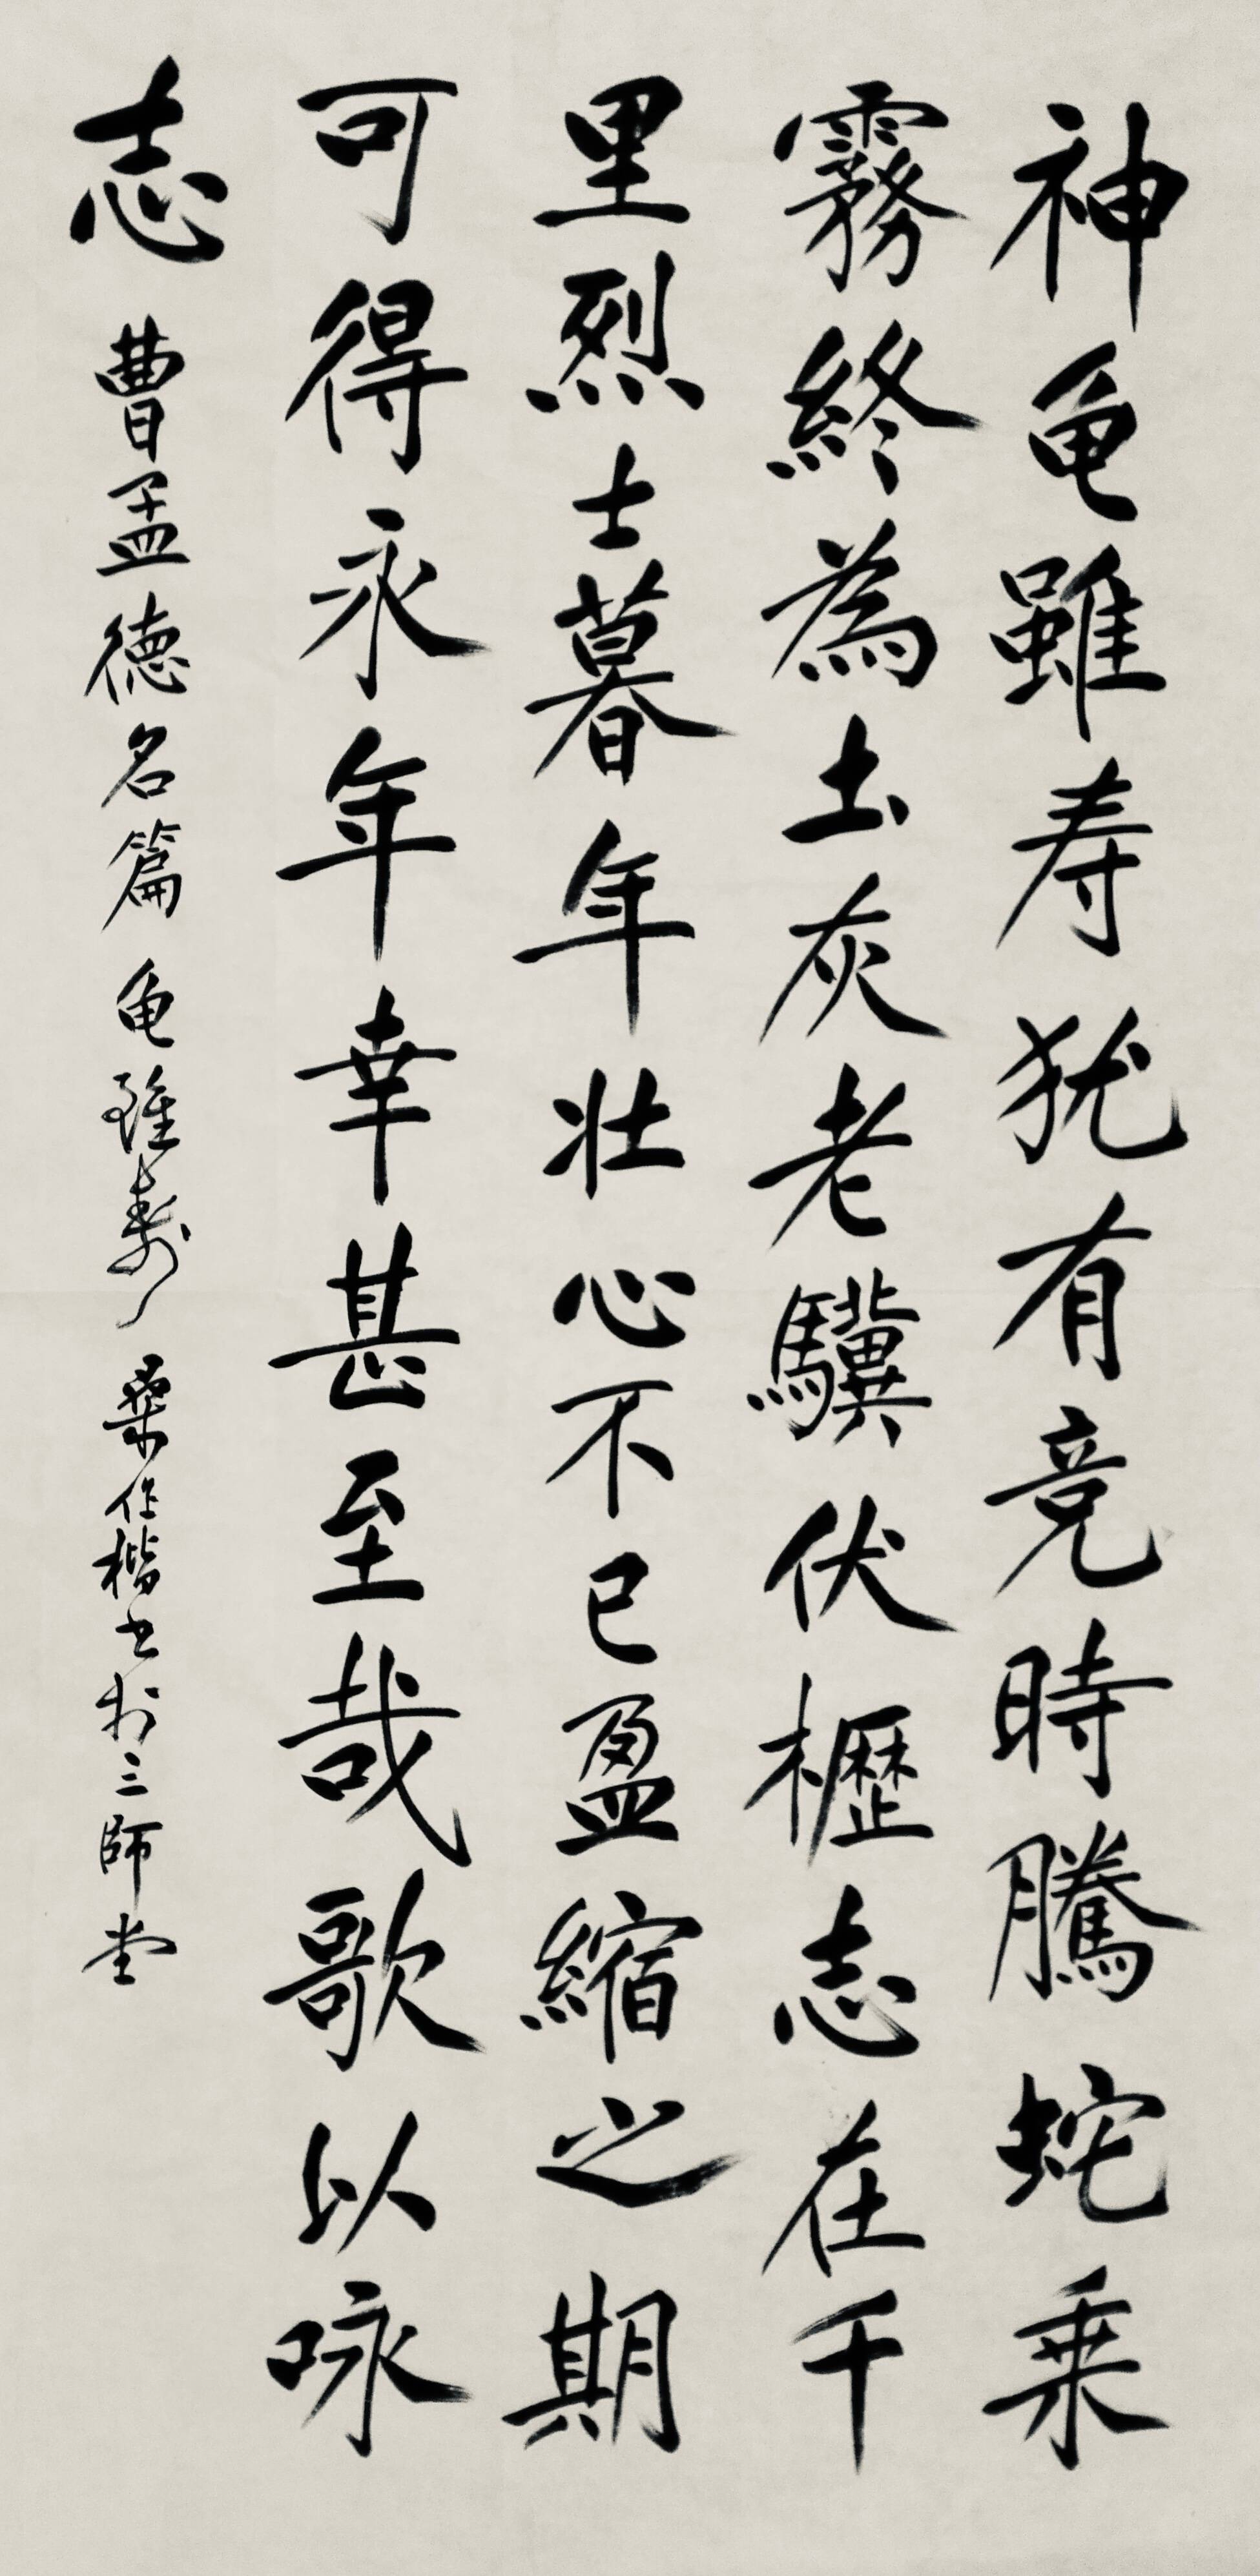 神亀雖寿犹有竟時騰蛇乘
霧終為土灰老驥伏櫪志在千
里烈士暮年壮心不已盈縮之期
可得永年幸甚至哉歌以咏
志 曹孟德名篇 亀雖寿 桑作楷书於三師堂